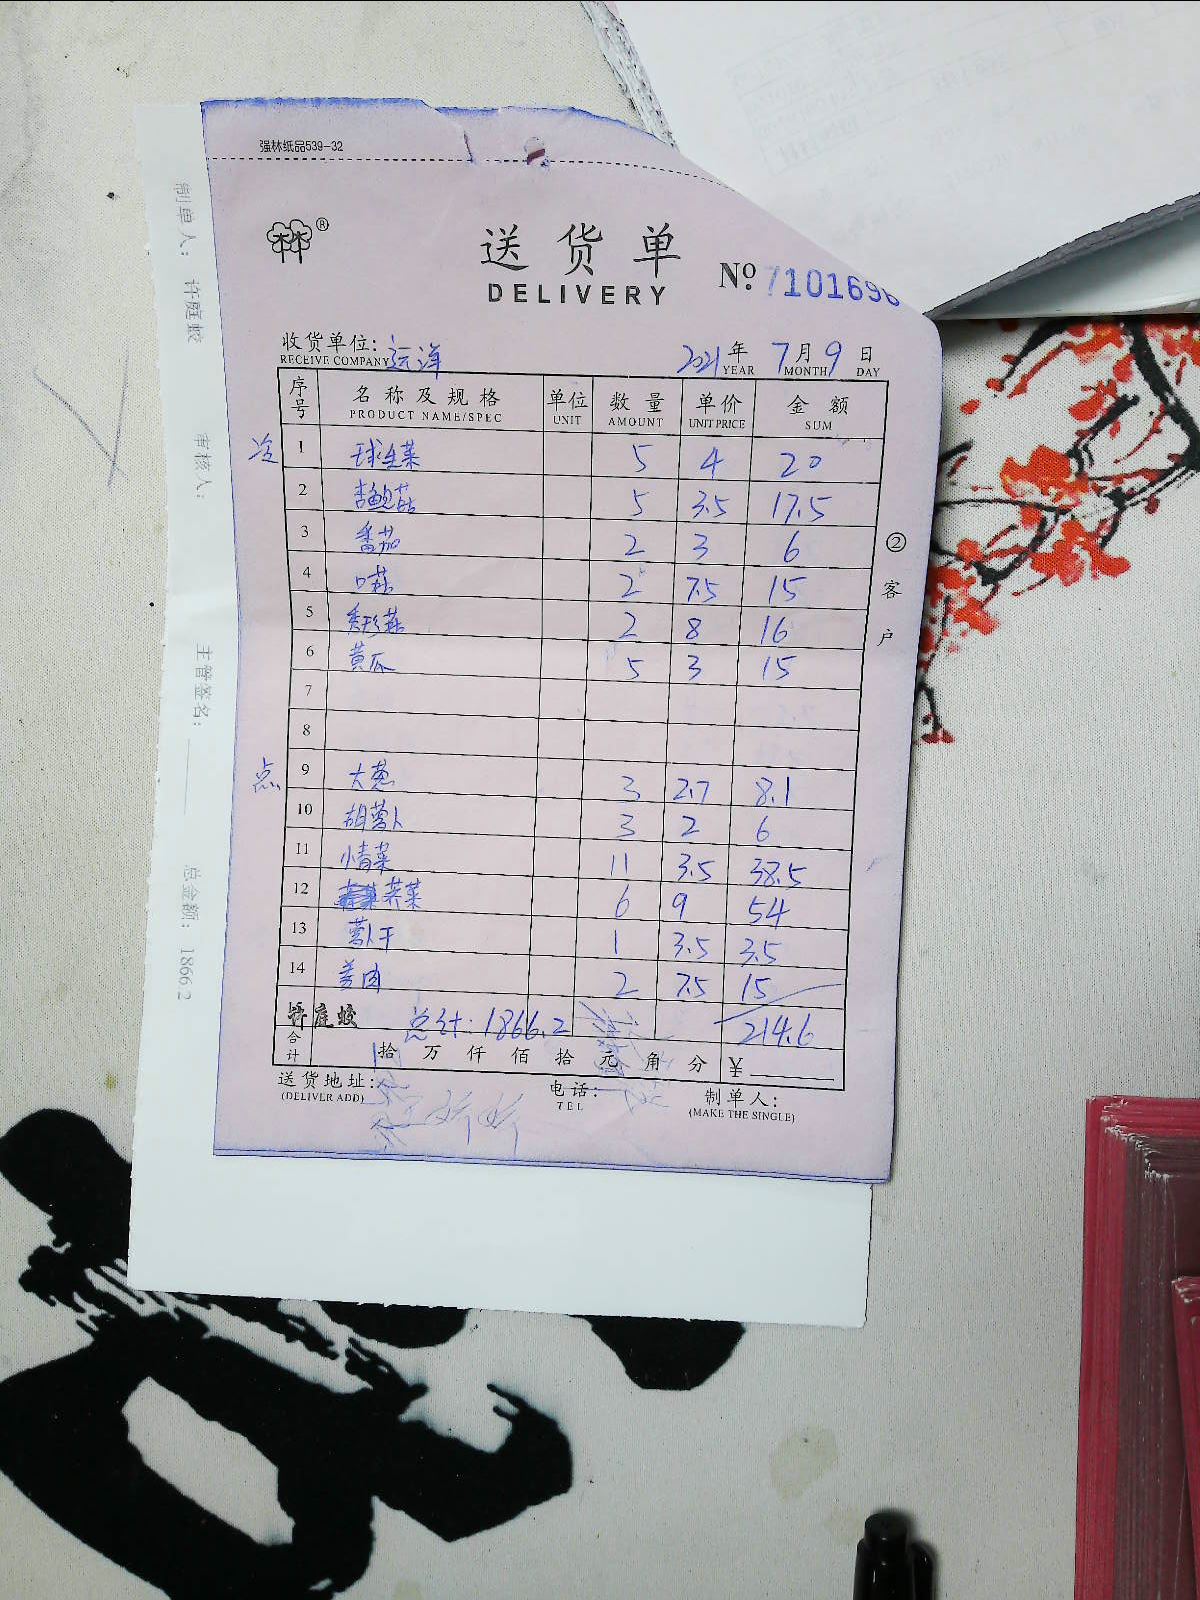 强林纸品539-32
林林®
送货单
DELIVERY
No. 7101696
收货单位: 远洋 2021年 7月 9日
RECEIVE COMPANY YEAR MONTH DAY
序号 名称及规格 单位 数量 单价 金额
PRODUCT NAME/SPEC UNIT AMOUNT UNIT PRICE SUM
冷 1 球生菜 5 4 20
2 杏鲍菇 5 3.5 17.5
3 番茄 2 3 6
4 口菇 2 7.5 15
5 2 8 16
6 黄瓜 5 3 15
7
8
点 9 大葱 3 2.7 8.1
10 胡萝卜 3 2 6
11 小青菜 11 3.5 38.5
12 荠菜 6 9 54
13 萝卜干 1 3.5 3.5
14 姜肉 2 7.5 15
许庭蛟 总计: 1866.2 214.6
合计 拾 万 仟 佰 拾 元 角 分 ¥
送货地址: 电话: 制单人:
(DELIVER ADD) TEL (MAKE THE SINGLE)
②客户
制单人: 许庭蛟 审核人: 主管签名: 总金额: 1866.2